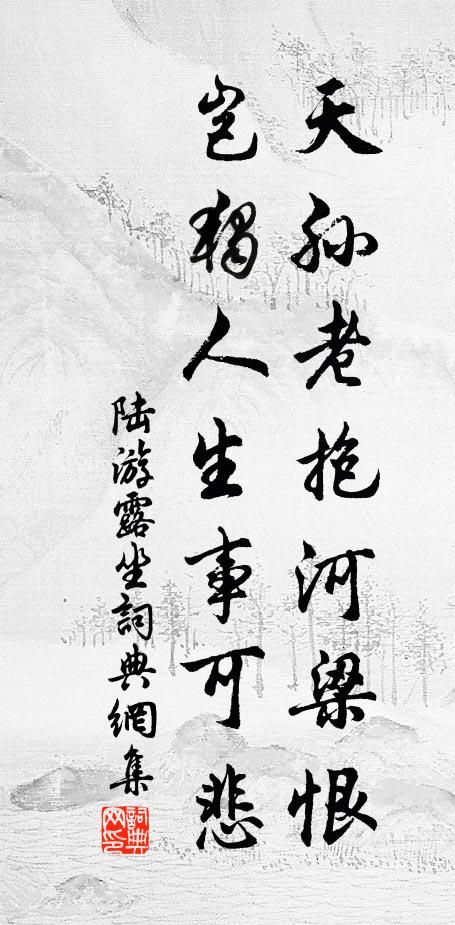 天孙老抱河梁恨
岂独人生事可悲
陆游露坐詞典網集
詞典
网印